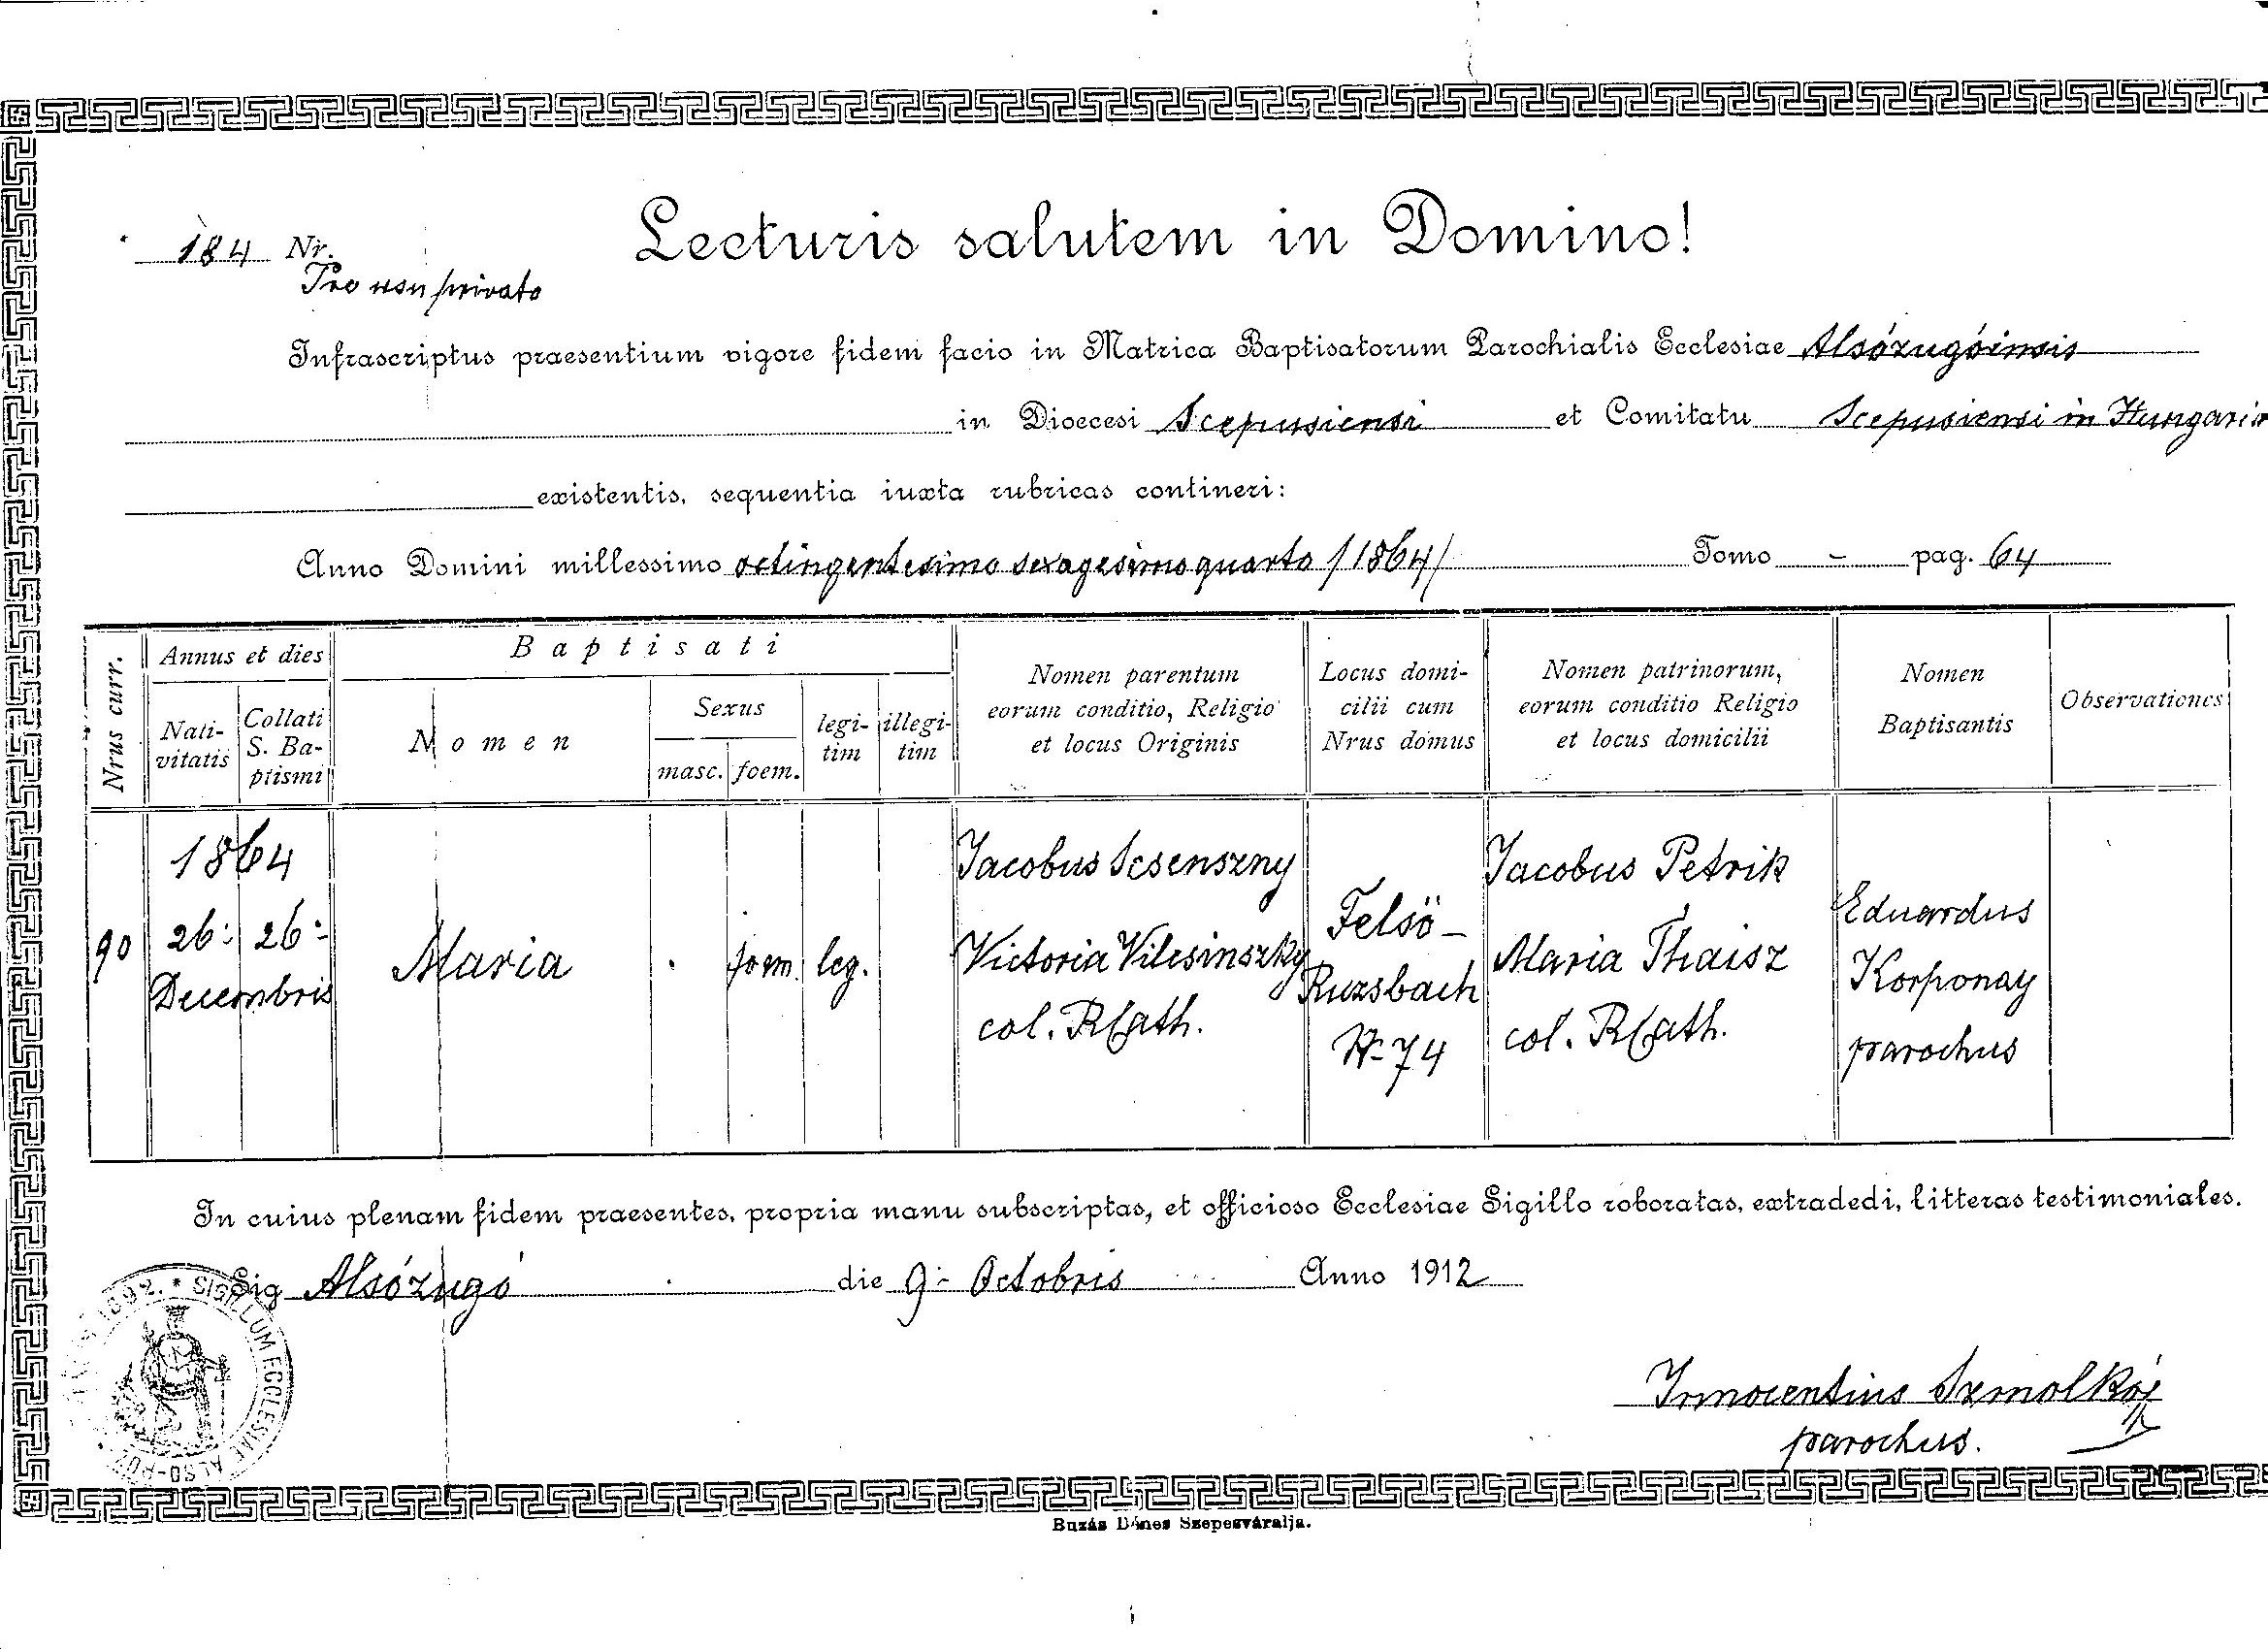 Lecturis salutem in Domino!
184 Nr.
Pro usu privato
Infrascriptus praesentium vigore fidem facio in Matrica Baptisatorum Parochialis Ecclesiae Alsózugóinsis
in Dioecesi Scepusiensi et Comitatu Scepusiensi in Hungaria
existentis, sequentia iuxta rubricas contineri:
Anno Domini millessimo octingentesimo sexagesimo quarto /1864/ Tomo – pag. 64
Nrus curr.
Annus et dies
Nati-
vitatis
Collati
S. Ba-
ptismi
Baptisati
Nomen
Sexus
masc. foem.
legi-
tim
illegi-
tim
Nomen parentum
eorum conditio, Religio
et locus Originis
Locus domi-
cilii cum
Nrus domus
Nomen patrinorum,
eorum conditio Religio
et locus domicilii
Nomen
Baptisantis
Observationes
90
1864
26: 26:
Decembris
Maria
foem.
leg.
Jacobus Scsenszny
Victoria Vilcsinszky
col. RCath.
Felsö-
Ruzsbach
N- 74
Jacobus Petrik
Maria Thaisz
col. RCath.
Eduardus
Korponay
parochus
In cuius plenam fidem praesentes, propria manu subscriptas, et officioso Ecclesiae Sigillo roboratas, extradedi, litteras testimoniales.
Sig Alsózugó die 9- Octobris Anno 1912
1892. * SIGILLUM ECCLESIAE ALSO-
Innocentius Szmolkáj
parochus.
Buzás Dénes Szepesváralja.